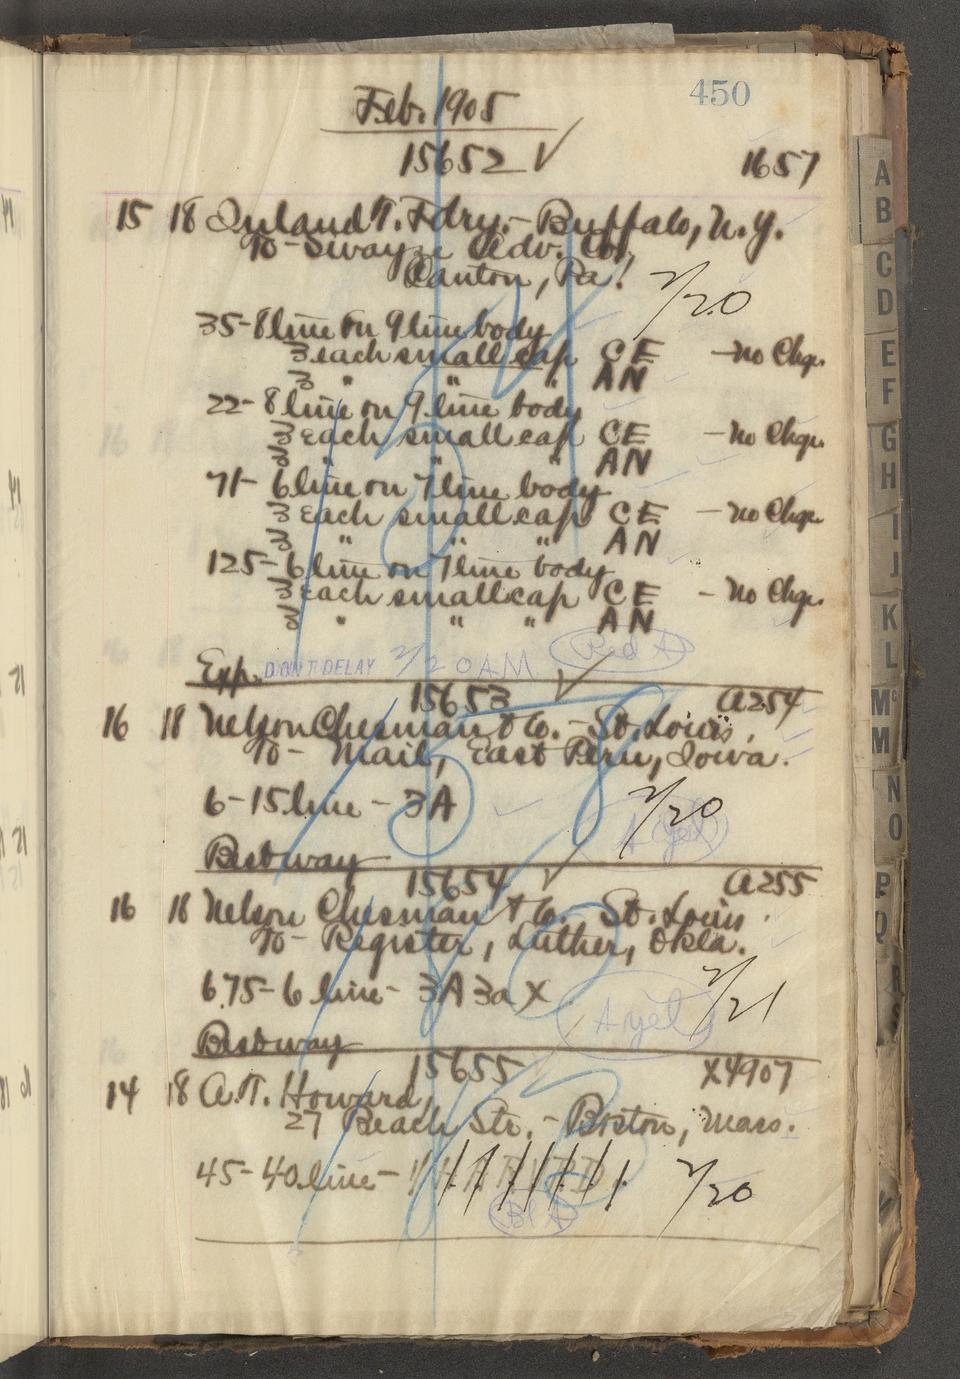 450
Feb. 1905
15652 √ 1657
15 18 Inland T. Fdry. - Buffalo, N.Y.
To - Swayze Adv. Co.,
Canton, Pa.
2/20
35 - 8 line on 9 line body
3 each small cap C E - No Chge.
3 " " " A N
22 - 8 line on 9 line body
2 each small cap C E - No Chge.
2 " " " A N
71 - 6 line on 7 line body
2 each small cap C E - No Chge.
2 " " " A N
125 - 6 line on 7 line body
2 each small cap C E - No Chge.
2 " " " A N
Exp. DON'T DELAY 2/20 AM Red A
15653 √ A254
16 18 Nelson Chesman & Co. - St. Louis.
To - Mail, East Peru, Iowa.
6 - 15 line - 3A 2/20
Bestway
15654 √ A255
16 18 Nelson Chesman & Co. St. Louis.
To - Register, Luther, Okla.
675 - 6 line - 3A 3a X 2/21
Bestway A yel
15655 X4907
14 18 A. T. Howard,
27 Beach Str. - Boston, Mass.
45 - 40 line - 2/20
A
B
C
D
E
F
G
H
I
J
K
L
Mc
M
N
O
P
Q
R